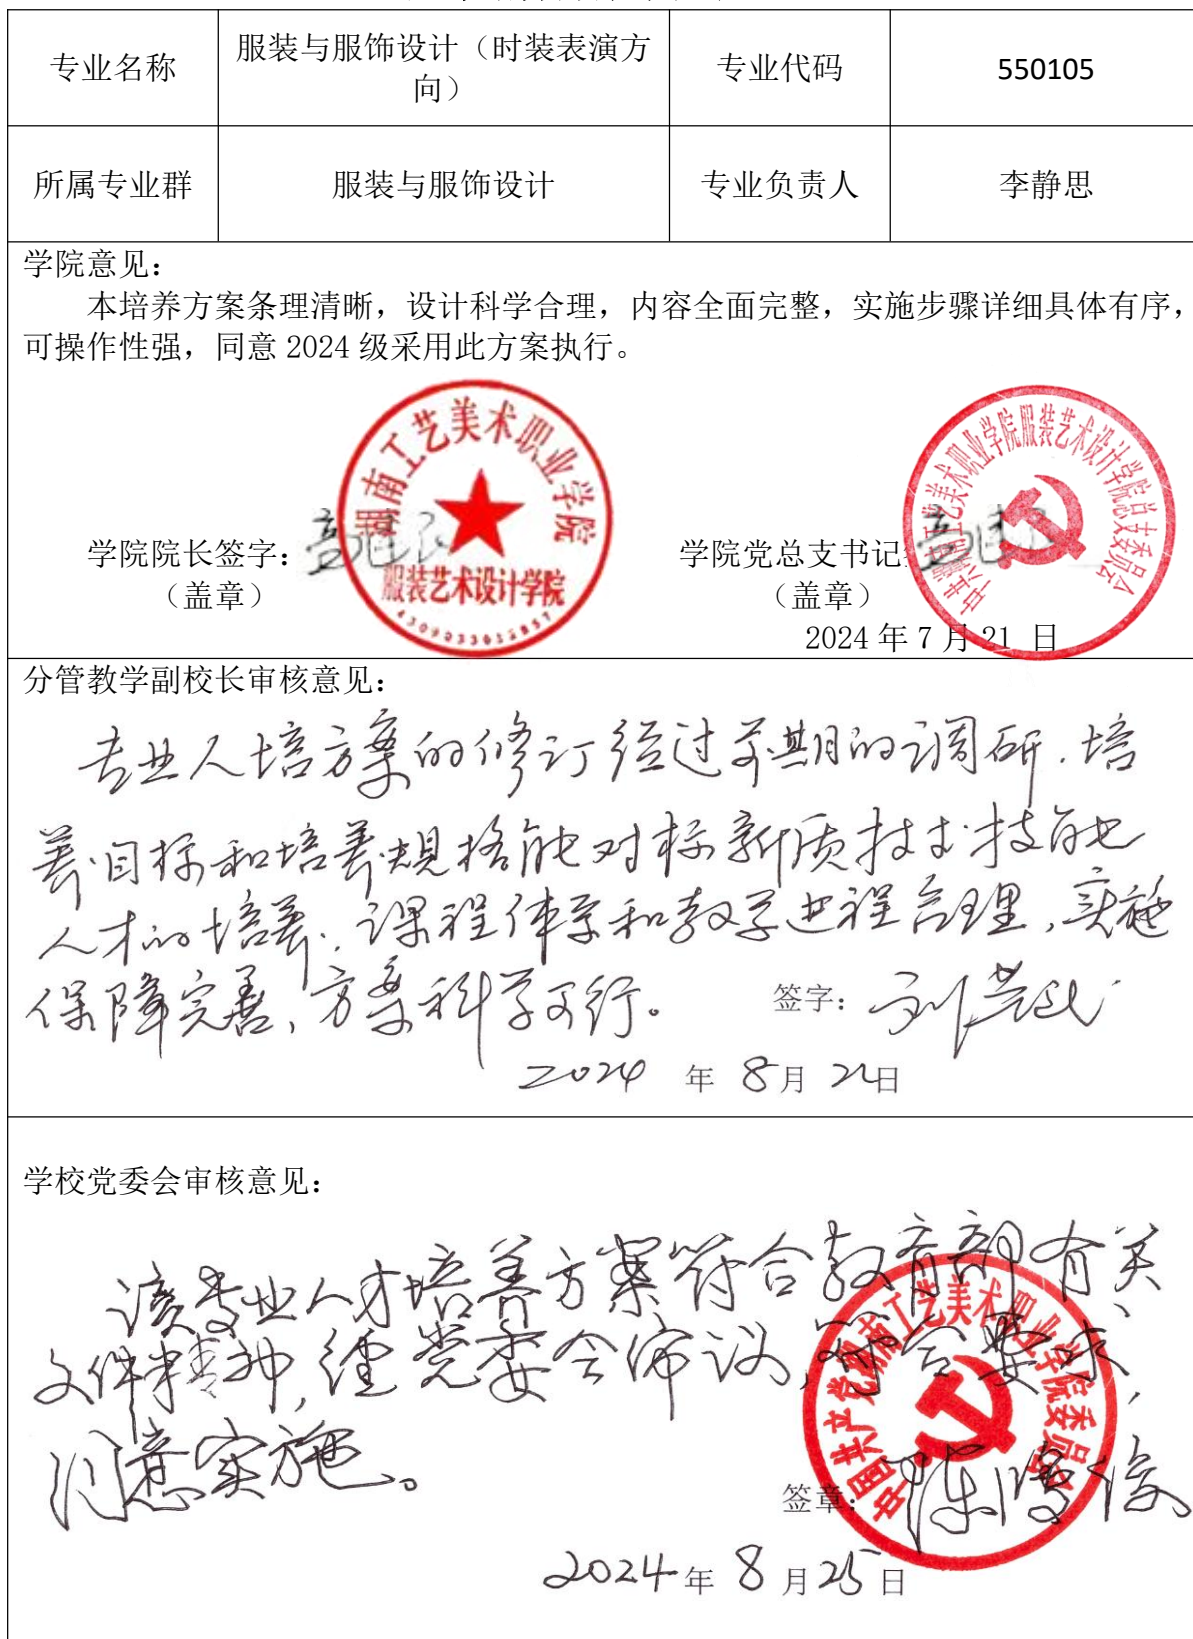 专业名称
服装与服饰设计（时装表演方
向）
专业代码
550105
所属专业群
服装与服饰设计
专业负责人
李静思
学院意见：
本培养方案条理清晰，设计科学合理，内容全面完整，实施步骤详细具体有序，
可操作性强，同意 2024 级采用此方案执行。
湖南工艺美术职业学院
服装艺术设计学院
学院院长签字：
（盖章）
中共湖南工艺美术职业学院服装艺术设计学院总支委员会
学院党总支书记
（盖章）
2024 年 7 月 21 日
分管教学副校长审核意见：
专业人培方案的修订经过前期的调研，培
养目标和培养规格能对标新质技术技能
人才的培养，课程体系和教学进程合理，实施
保障完善，方案科学可行。
签字：
2024 年 8月 22日
学校党委会审核意见：
该专业人才培养方案符合教育部有关
文件精神，经党委会审议，符合要求，
同意实施。
中国共产党湖南工艺美术职业学院委员会
签章：
2024年 8 月25日